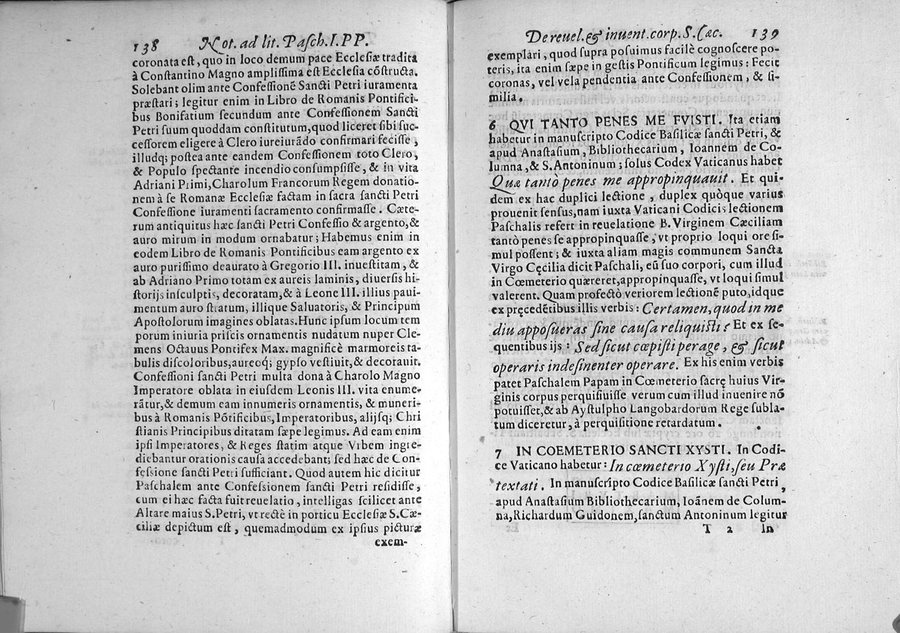 138 Not. ad lit. Pasch. I. PP.
coronata est, quo in loco demum pace Ecclesiæ tradita
à Constantino Magno amplissima est Ecclesia cōstructa.
Solebant olim ante Confessionē Sancti Petri iuramenta
præstari; legitur enim in Libro de Romanis Pontifici-
bus Bonifatium secundum ante Confessionem Sancti
Petri suum quoddam constitutum, quod liceret sibi suc-
cessorem eligere à Clero iureiurādo confirmari fecisse,
illudq; postea ante eandem Confessionem toto Clero,
& Populo spectante incendio consumpsisse, & in vita
Adriani Primi, Charolum Francorum Regem donatio-
nem à se Romanæ Ecclesiæ factam in sacra sancti Petri
Confessione iuramenti sacramento confirmasse. Cæte-
rum antiquitus hæc sancti Petri Confessio & argento, &
auro mirum in modum ornabatur; Habemus enim in
eodem Libro de Romanis Pontificibus eam argento ex
auro purissimo deaurato à Gregorio III. inuestitam, &
ab Adriano Primo totam ex aureis laminis, diuersis hi-
storijs insculptis, decoratam, & à Leone III. illius paui-
mentum auro stratum, illique Saluatoris, & Principum
Apostolorum imagines oblatas. Hunc ipsum locum tem
porum iniuria priscis ornamentis nudatum nuper Cle-
mens Octauus Pontifex Max. magnificè marmoreis ta-
bulis discoloribus, aureoq; gypso vestiuit, & decorauit.
Confessioni sancti Petri multa dona à Charolo Magno
Imperatore oblata in eiusdem Leonis III. vita enume-
rātur, & demum eam innumeris ornamentis, & muneri-
bus à Romanis Pōtificibus, Imperatoribus, alijsq; Chri
stianis Principibus ditatam sæpe legimus. Ad eam enim
ipsi Imperatores, & Reges statim atque Vrbem ingre-
diebantur orationis causa accedebant; sed hæc de Con-
fessione sancti Petri sufficiant. Quod autem hic dicitur
Paschalem ante Confessionem sancti Petri resedisse,
cum ei hæc facta fuit reuelatio, intelligas scilicet ante
Altare maius S. Petri, vt rectè in porticu Ecclesiæ S. Cæ-
ciliæ depictum est, quemadmodum ex ipsius picturæ
exem-
De reuel. & inuent. corp. S. Cæc. 139
exemplari, quod supra posuimus facilè cognoscere po-
teris, ita enim sæpe in gestis Pontificum legimus: Fecit
coronas, vel vela pendentia ante Confessionem, & si-
milia.
6 QVI TANTO PENES ME FVISTI. Ita etiam
habetur in manuscripto Codice Basilicæ sancti Petri, &
apud Anastasium, Bibliothecarium, Ioannem de Co-
lumna, & S. Antoninum; solus Codex Vaticanus habet
Quæ tantò penes me appropinquauit. Et qui-
dem ex hac duplici lectione, duplex quòque varius
prouenit sensus, nam iuxta Vaticani Codicis lectionem
Paschalis refert in reuelatione B. Virginem Cæciliam
tantò penes se appropinquasse, vt proprio loqui ore si-
mul possent; & iuxta aliam magis communem Sancta
Virgo Cęcilia dicit Paschali, eū suo corpori, cum illud
in Cœmeterio quæreret, appropinquasse, vt loqui simul
valerent. Quam profectò veriorem lectionē puto, idque
ex pręcedētibus illis verbis: Certamen, quod in me
diu apposueras sine causa reliquisti: Et ex se-
quentibus ijs: Sed sicut cœpisti perage, & sicut
operaris indesinenter operare. Ex his enim verbis
patet Paschalem Papam in Cœmeterio sacrę huius Vir-
ginis corpus perquisiuisse verum cum illud inuenire nō
potuisset, & ab Aystulpho Langobardorum Rege subla-
tum diceretur, à perquisitione retardatum.
7 IN COEMETERIO SANCTI XYSTI. In Codi-
ce Vaticano habetur: In cœmeterio Xysti, seu Præ
textati. In manuscripto Codice Basilicæ sancti Petri,
apud Anastasium Bibliothecarium, Ioānem de Colum-
na, Richardum Guidonem, sanctum Antoninum legitur
T 2 In